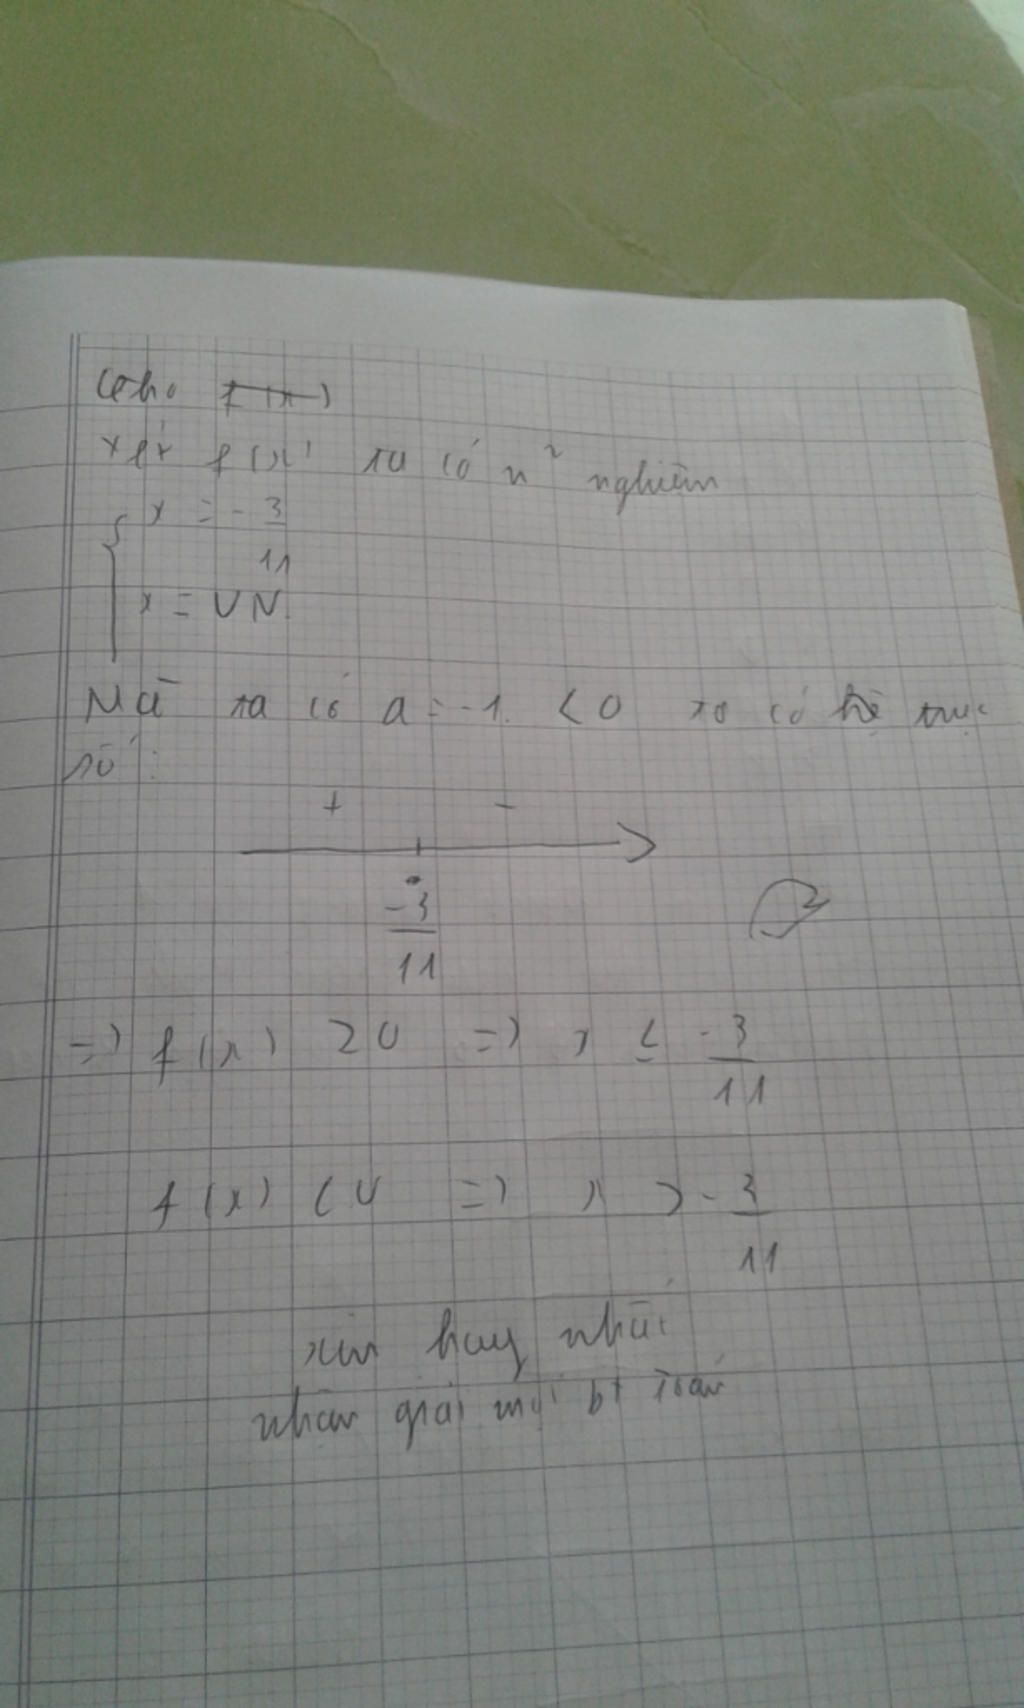 Cho f(x)
xét f(x) ta có n² nghiệm
x = - 3
11
x = VN
Mà ta có a = -1 < 0 ta có hệ trục
số :
+ -
-3
11
=> f(x) ≥ 0 => x ≤ - 3
11
f(x) < 0 => x > - 3
11
xin hay nhất
nhận giải mọi bt toán